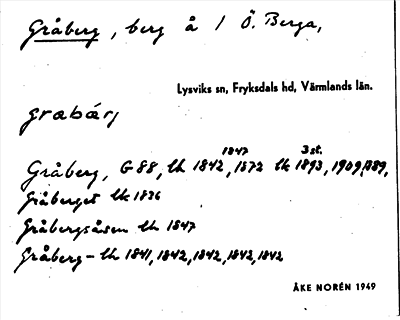 Gråberg, berg å 1 Ö. Berga,
Lysviks sn, Fryksdals hd, Värmlands län.
grabárj
1847 3 st.
Gråberg, G 88, lh 1842, 1872 lk 1893, 1909, 1889,
Gråberget lk 1836
Gråbergsåsen lh 1847
Gråberg- lh 1841, 1842, 1842, 1842, 1842
ÅKE NORÉN 1949